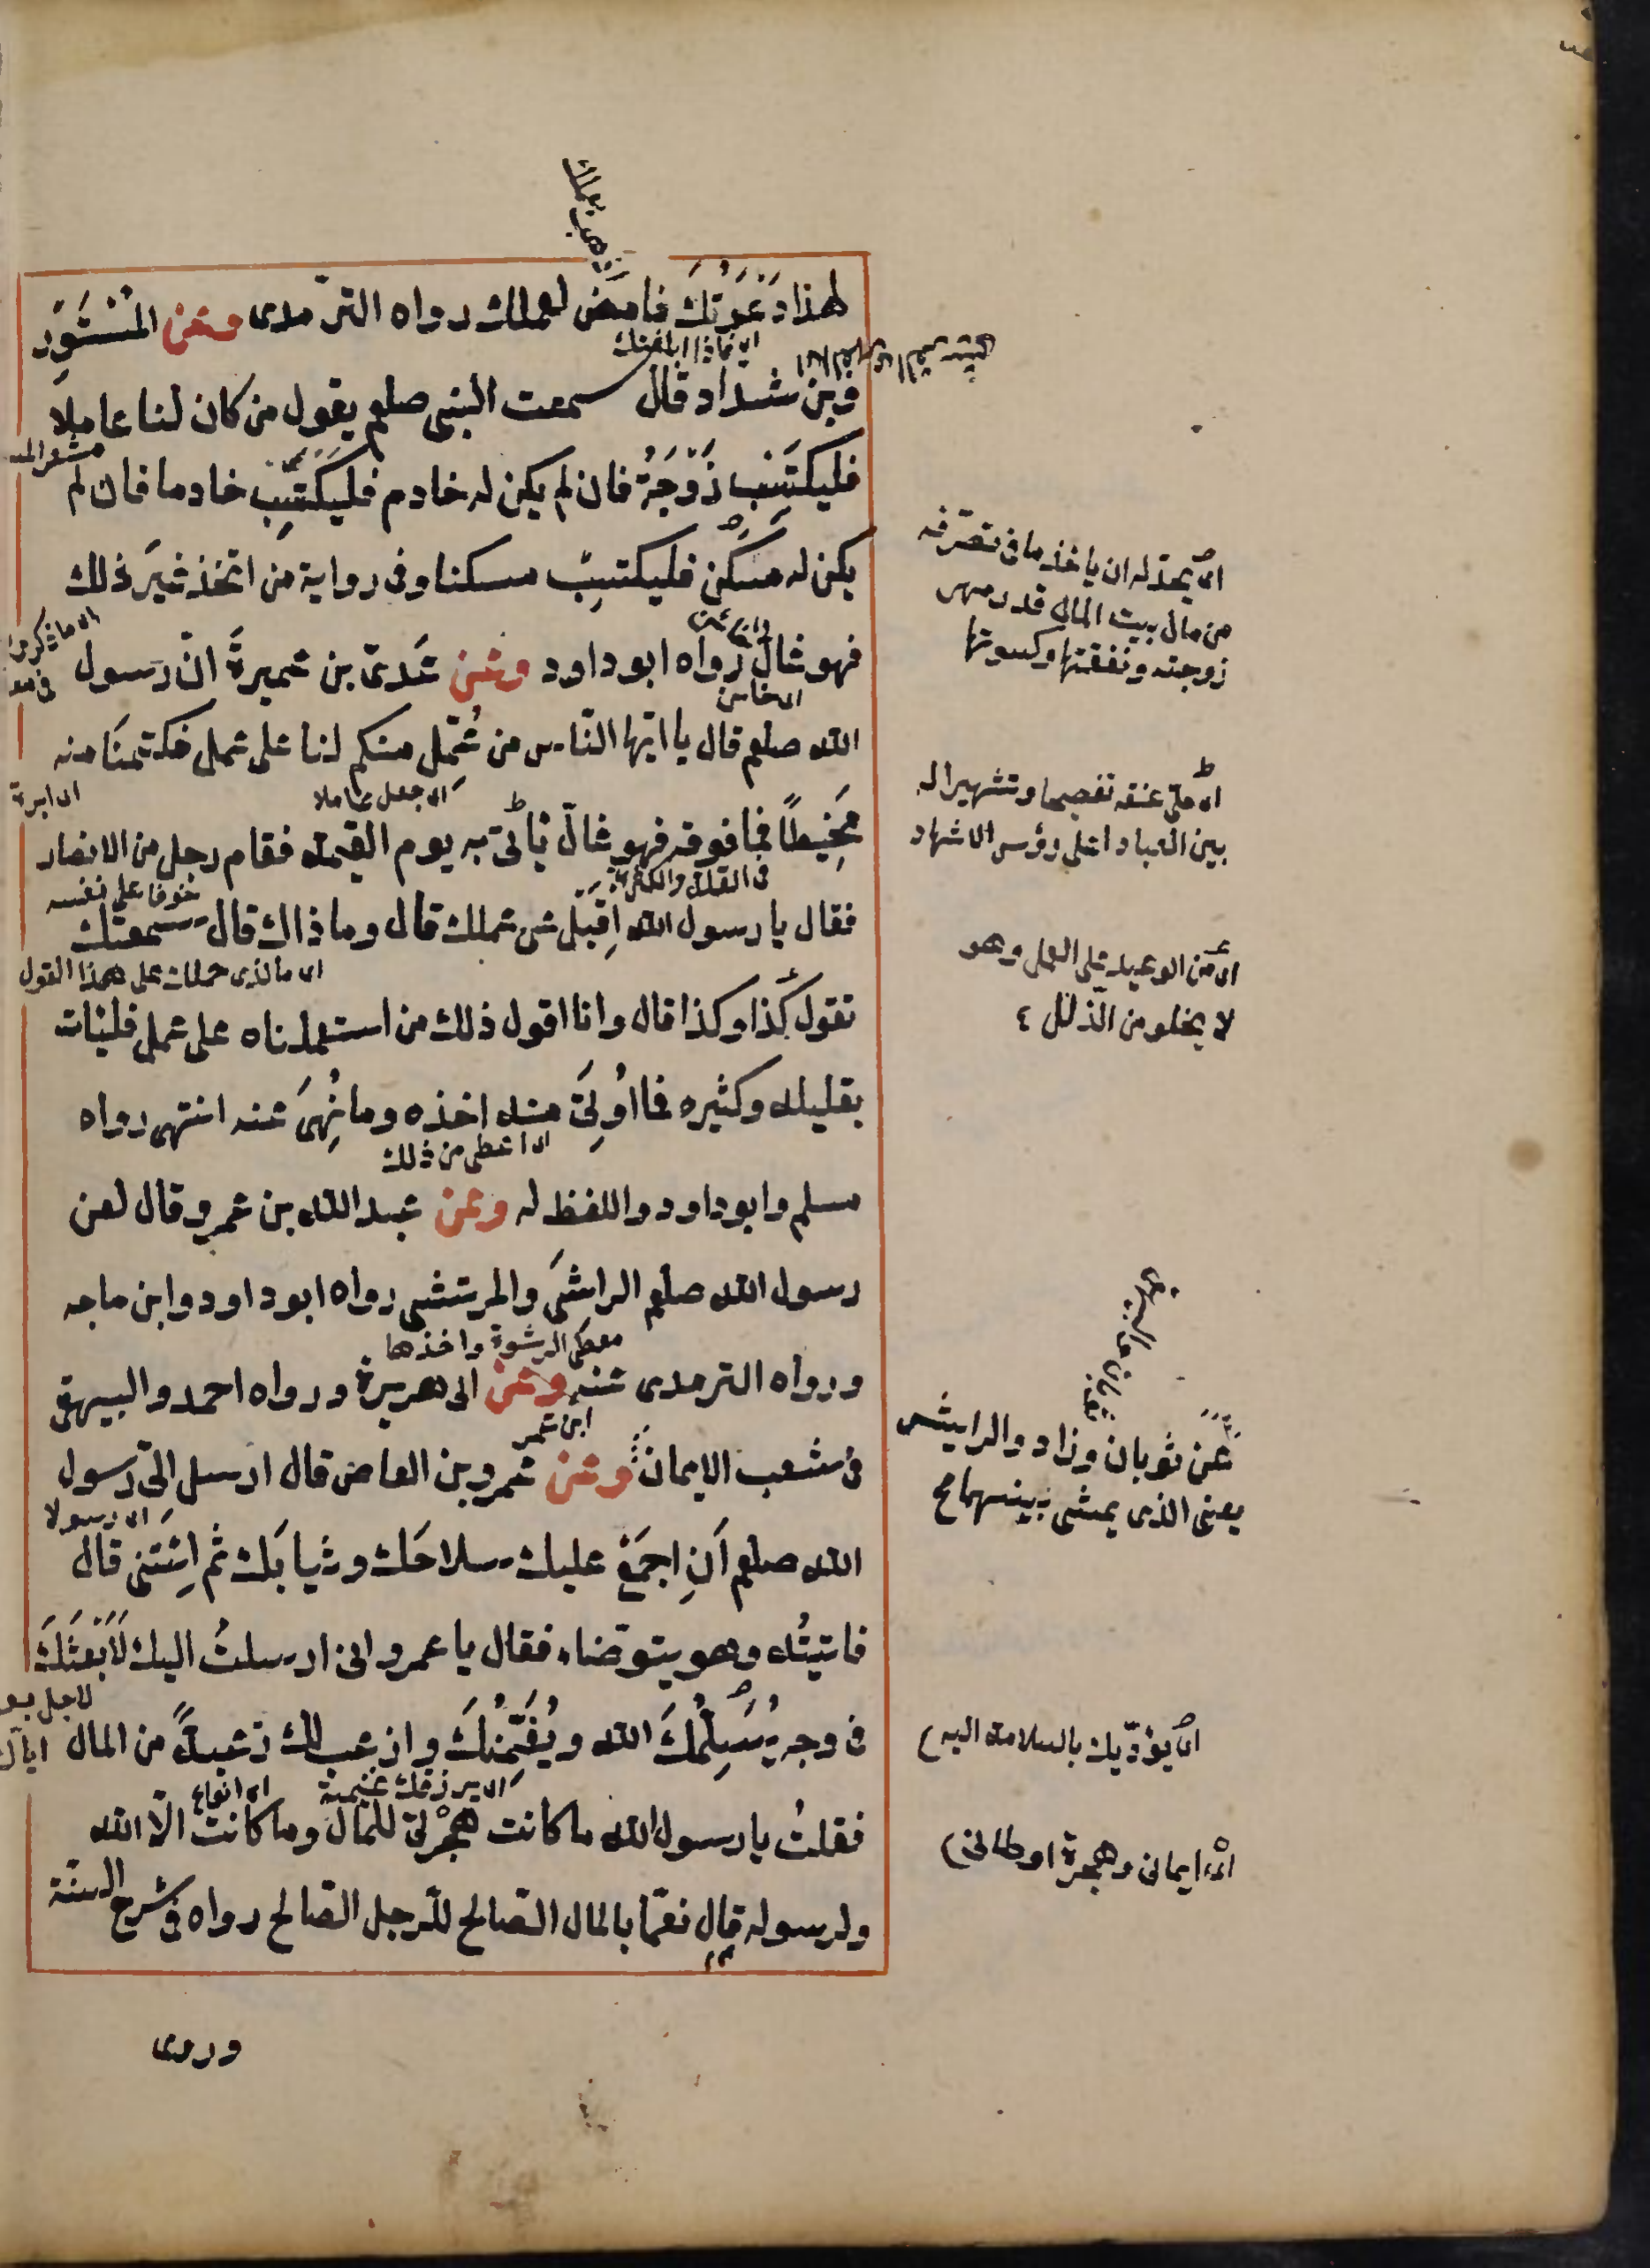 لهذا دَعَوْتُكَ فامض لعملك رواه الترمدى وعن المُسْتَوْرِد
اى فاذا ابلغتك
وبن شداد قال سمعت النبى صلعم يقول من كان لنا عاملا
فليكتَسِب زَوْجَةً فان لم يكن له خادم فليَكتَسِب خادما فان لم
يكن له مَسْكن فليكتسِبْ مسكنا وفى رواية من اتخذ غيرَ ذلك
فهو غالّ رواه ابو داود وعن عَدىّ بن عميرةَ انّ رسول
اى خاين
الله صلعم قال يا ايّها النّاس من عُمِّل منكم لنا على عمل فكتمَنا منه
اى جعل عاملا
اى ابرة
مِخْيَطًا فما فوقه فهو غالّ يأتى به يوم القيمة فقام رجل من الانصار
فى القلة والكثرة
خوفا على نفسه
فقال يا رسول الله اِقبَل عنى عملك قال وما ذاك قال سمعتك
اى ما الذى حملك على هذا القول
تقول كذا وكذا قال وانا اقول ذلك من استعملناه على عمل فليأت
بقليله وكثيره فما اُوتِىَ منه اخذه وما نُهِىَ عنه انتهى رواه
اى اعطى من ذلك
مسلم وابو داود واللفظ له وعن عبد الله بن عمرو قال لعن
رسول الله صلعم الراشى والمرتشى رواه ابو داود وابن ماجه
معطى الرشوة واخذها
ورواه الترمدى عنه وعن ابى هريرة ورواه احمد والبيهقى
فى شعب الايمان وعن عمرو بن العاص قال ارسل الىّ رسول
اى رسولا
الله صلعم اَنِ اجمَعْ عليك سلاحَك وثيابَك ثم ائتنى قال
فاتيتُه وهو يتوضاء فقال يا عمرو انى ارسلتُ اليك لاَبْعَثَكَ
فى وجه يُسَلِّمُكَ الله ويُغَنِّمُكَ وازعب لك زعبةً من المال
اى يرزقك غنيمة
فقلتُ يا رسول الله ما كانت هجرتى للمال وما كانت الّا الله
ولرسوله قال نعمّا بالمال الصّالح للرجل الصّالح رواه فى شرح السنّة
وروى
اى يحل له ان ياخذ ما فى تصرّفه
من مال بيت المال قدر مهر
زوجته ونفقتها وكسوتها
اى على عنقه تفصيحا وتشهيرا له
بين العباد على رؤس الاشهاد
اى من الوعيد على العمل وهو
لا يخلو من الذلل ٤
عن ثوبان وزاد والرايش
يعنى الذى يمشى بينهما مح
اى يؤدّيك بالسلامة اليه
اى ايمانى وهجرة اوطانى